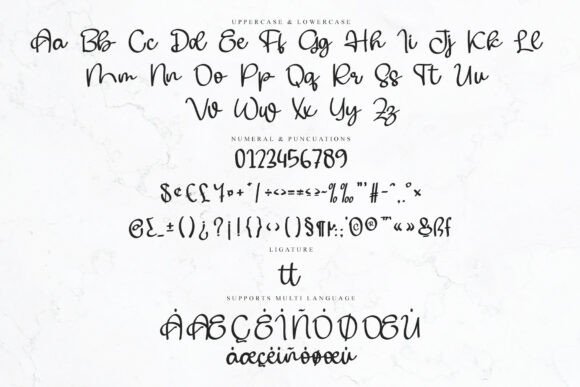 UPPERCASE & LOWERCASE
Aa Bb Cc Dd Ee Ff Gg Hh Ii Jj Kk Ll
Mm Nn Oo Pp Qq Rr Ss Tt Uu
Vv Ww Xx Yy Zz
NUMERAL & PUNCUATIONS
0123456789
$¢€£¥¤+*/÷<>=±≤≥~%‰"'#-^,.°×
@&_±()¿?¡!{}‹›()§¶†:;'©®"™«»&ßf
LIGATURE
tt
SUPPORTS MULTI LANGUAGE
ȦÆÇĖİÑȮØŒU̇
ȧæçëïñȯøœu̇